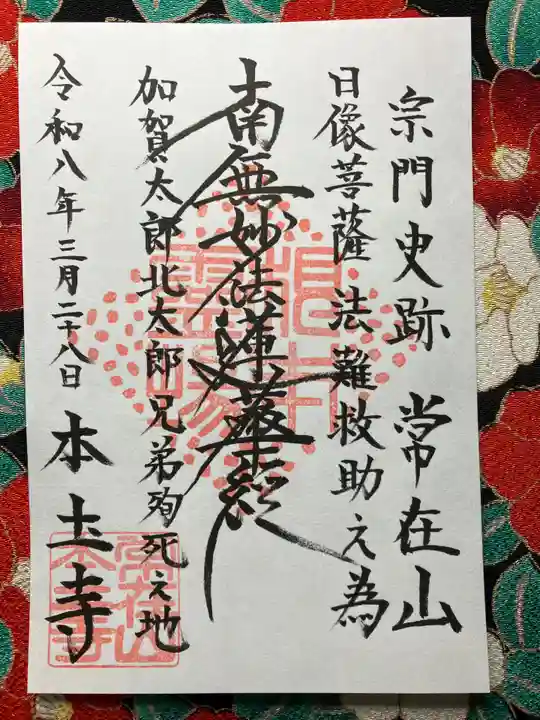 宗門史跡 常在山
日像菩薩 法難救助之為
南無妙法蓮華経
加賀太郎北太郎兄弟殉死之地
令和八年三月二十八日 本土寺